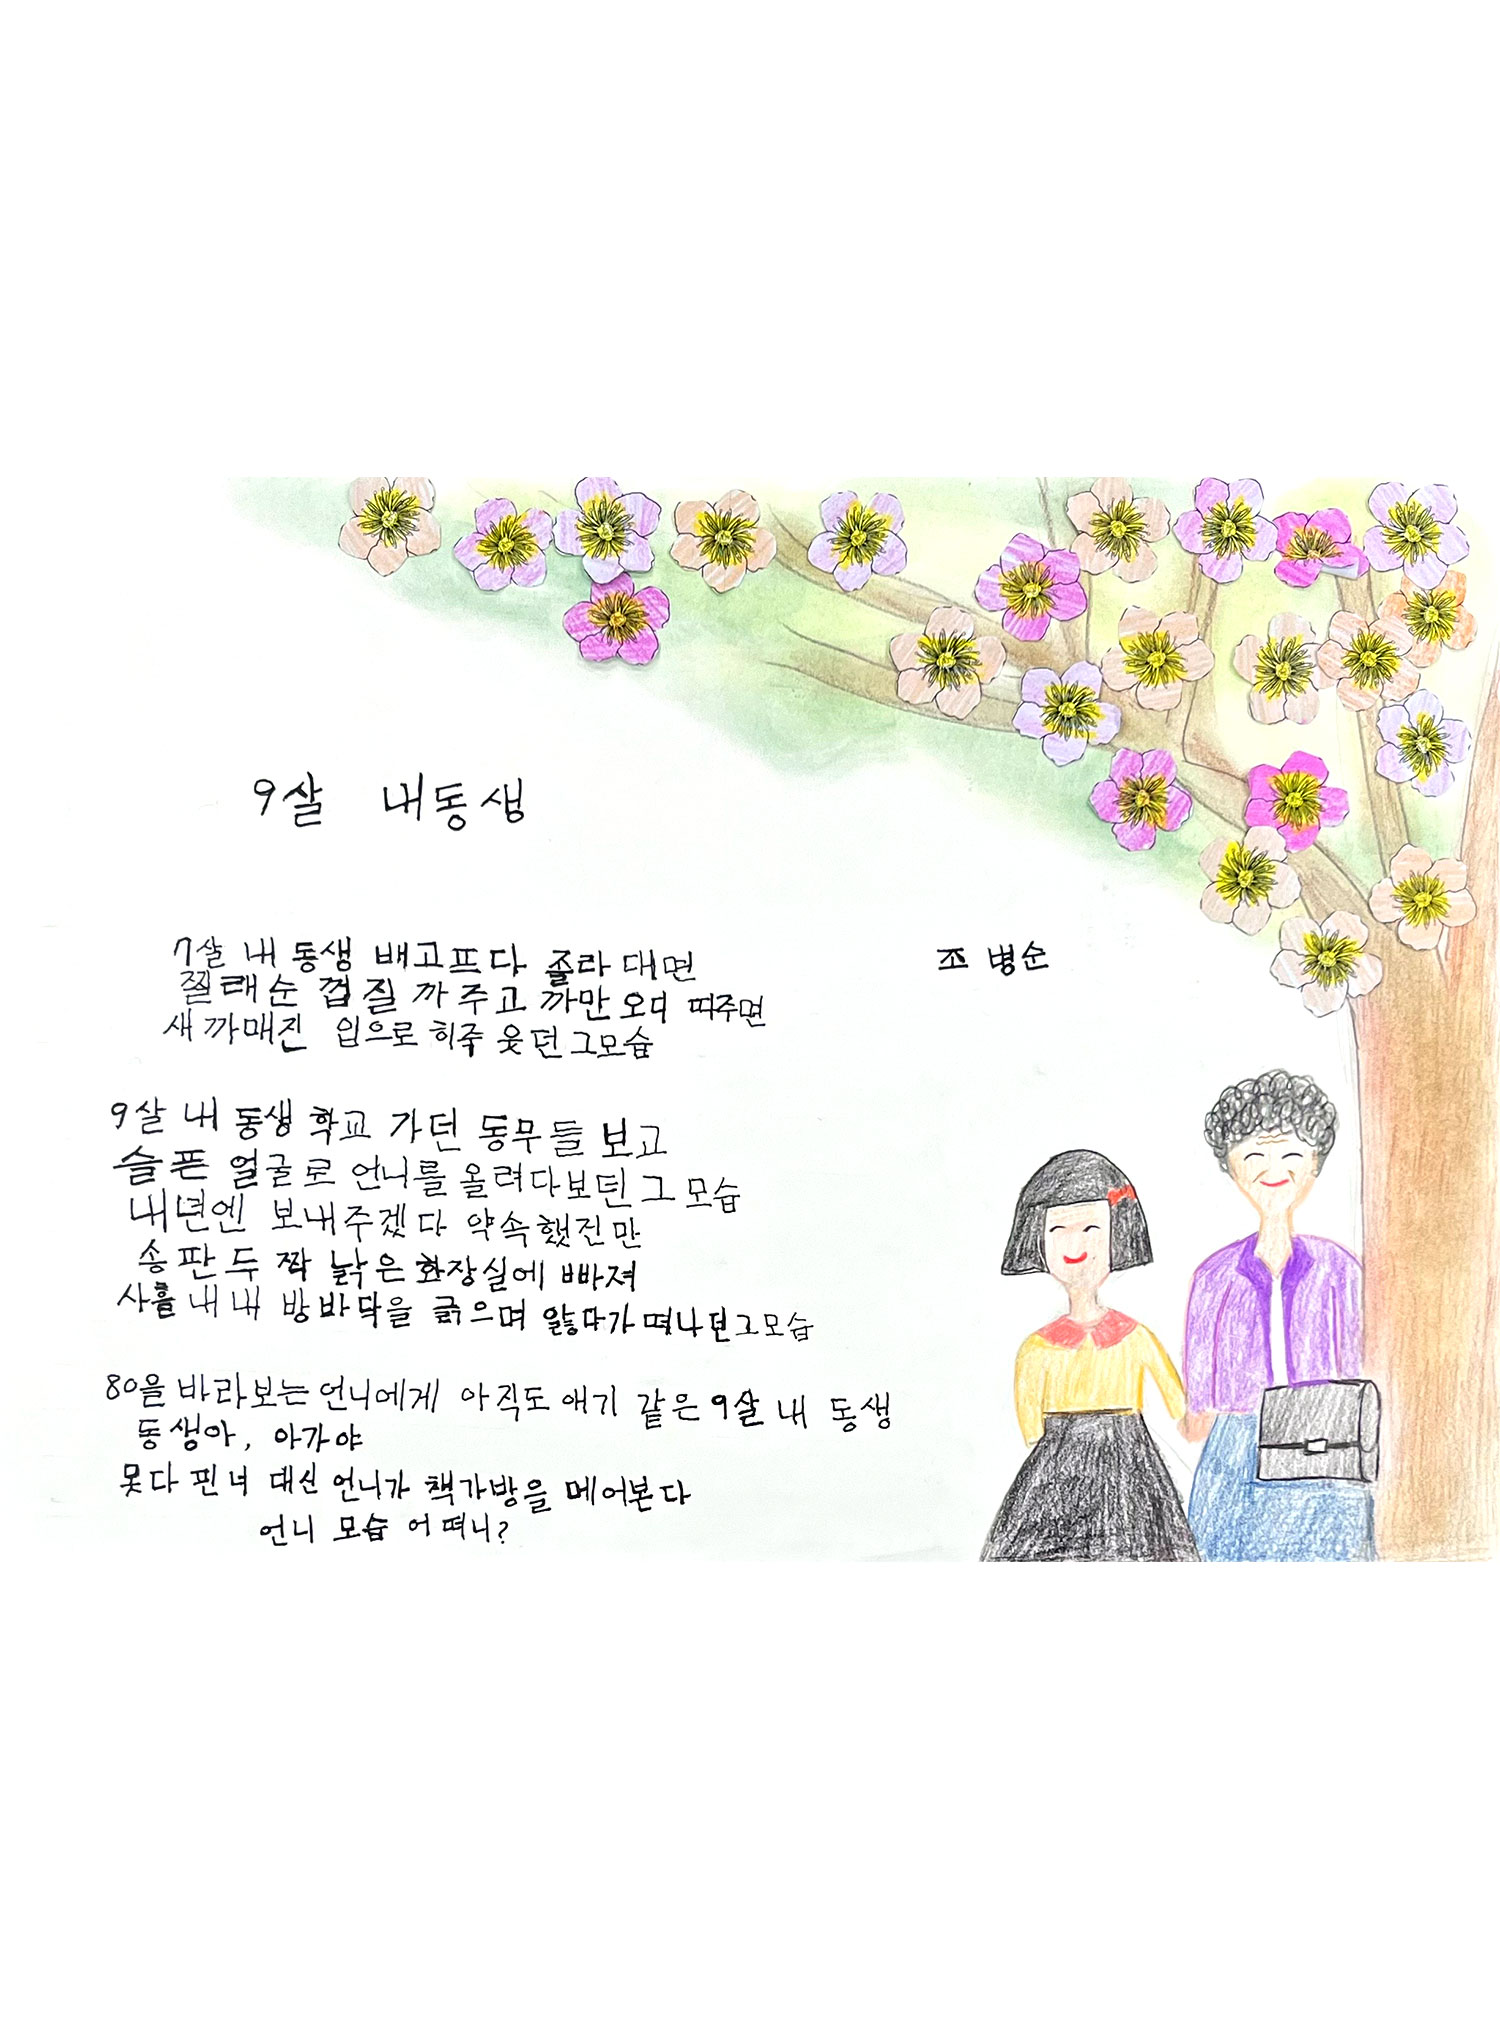 9살 내동생
조 병순
7살 내 동생 배고프다 졸라 대면
찔래순 껍질 까 주고 까만 오디 따주면
새까매진 입으로 히죽 웃던 그모습
9살 내 동생 학교 가던 동무들 보고
슬픈 얼굴로 언니를 올려다보던 그 모습
내년엔 보내주겠다 약속했진만
송판두 짝 낡은 화장실에 빠져
사흘 내내 방바닥을 긁으며 앓다가 떠나던 그모습
80을 바라보는 언니에게 아직도 애기 같은 9살 내 동생
동생아, 아가야
못다 핀 너 대신 언니가 책가방을 메어본다
언니 모습 어떠니?